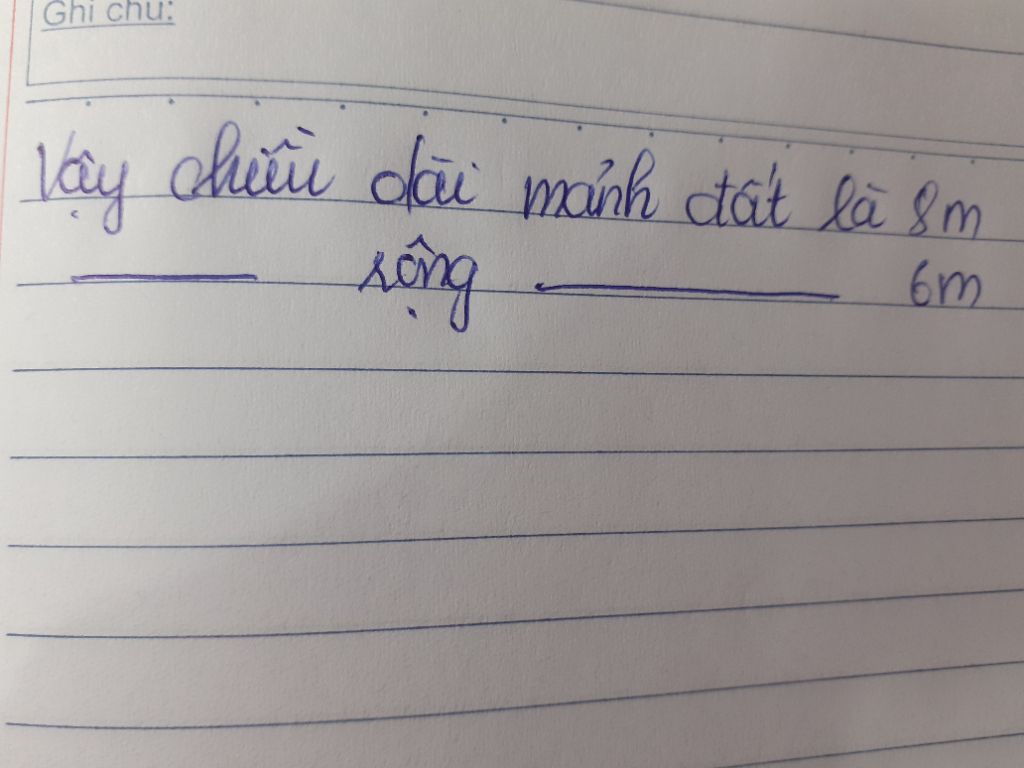 Ghi chú:
Vậy chiều dài mảnh đất là 8m
—— rộng —— 6m